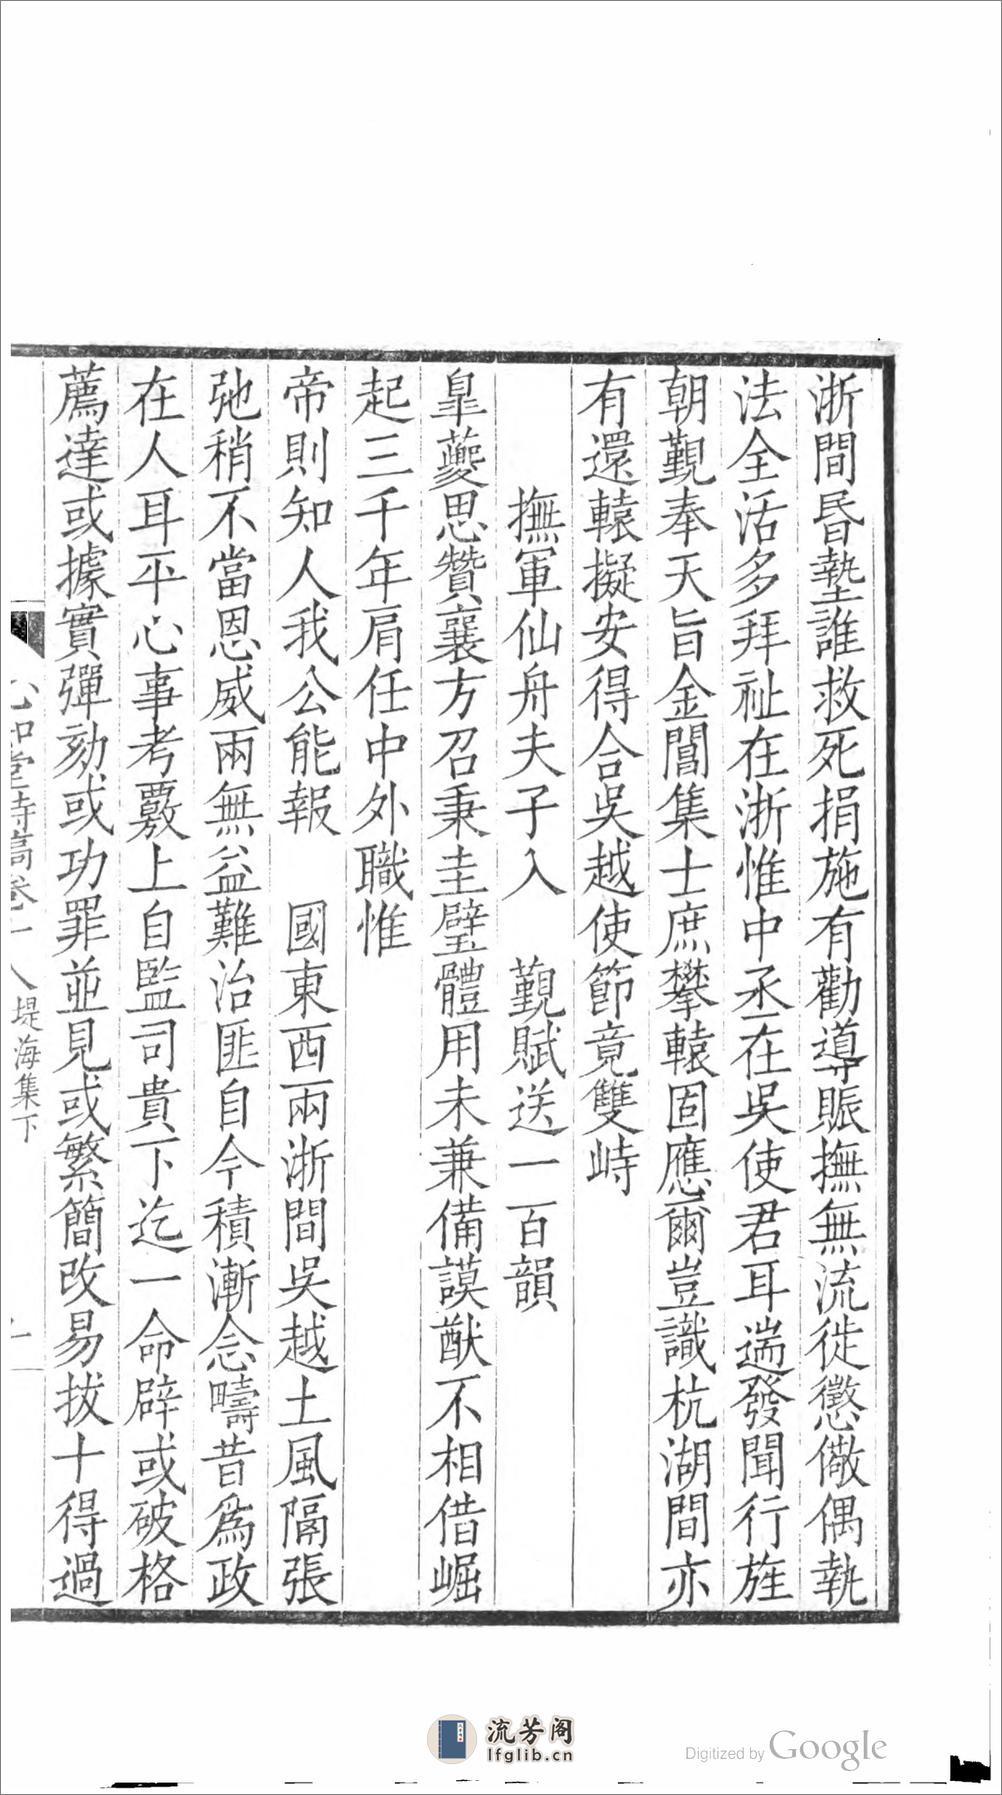 浙間昬墊誰救死捐施有勸導賑撫無流徙懲儆偶執
法全活多拜祉在浙惟中丞在吳使君耳遄發聞行旌
朝覲奉天旨金閶集士庶攀轅固應爾豈識杭湖間亦
有還轅擬安得合吳越使節竟雙峙
撫軍仙舟夫子入　覲賦送一百韻
皐夔思贊襄方召秉圭璧體用未兼備謨猷不相借崛
起三千年肩任中外職惟
帝則知人我公能報　國東西兩浙間吳越土風隔張
弛稍不當恩威兩無益難治匪自今積漸念疇昔爲政
在人耳平心事考覈上自監司貴下迄一命辟或破格
薦達或據實彈劾或功罪並見或繁簡改易拔十得過
心知堂詩高卷十八 堤海集下
流芳阁
lfglib.cn
Digitized by Google